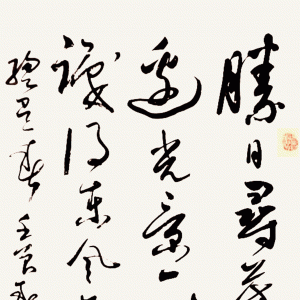 勝日尋芳
邊光景一
識得東風
總是春 壬寅